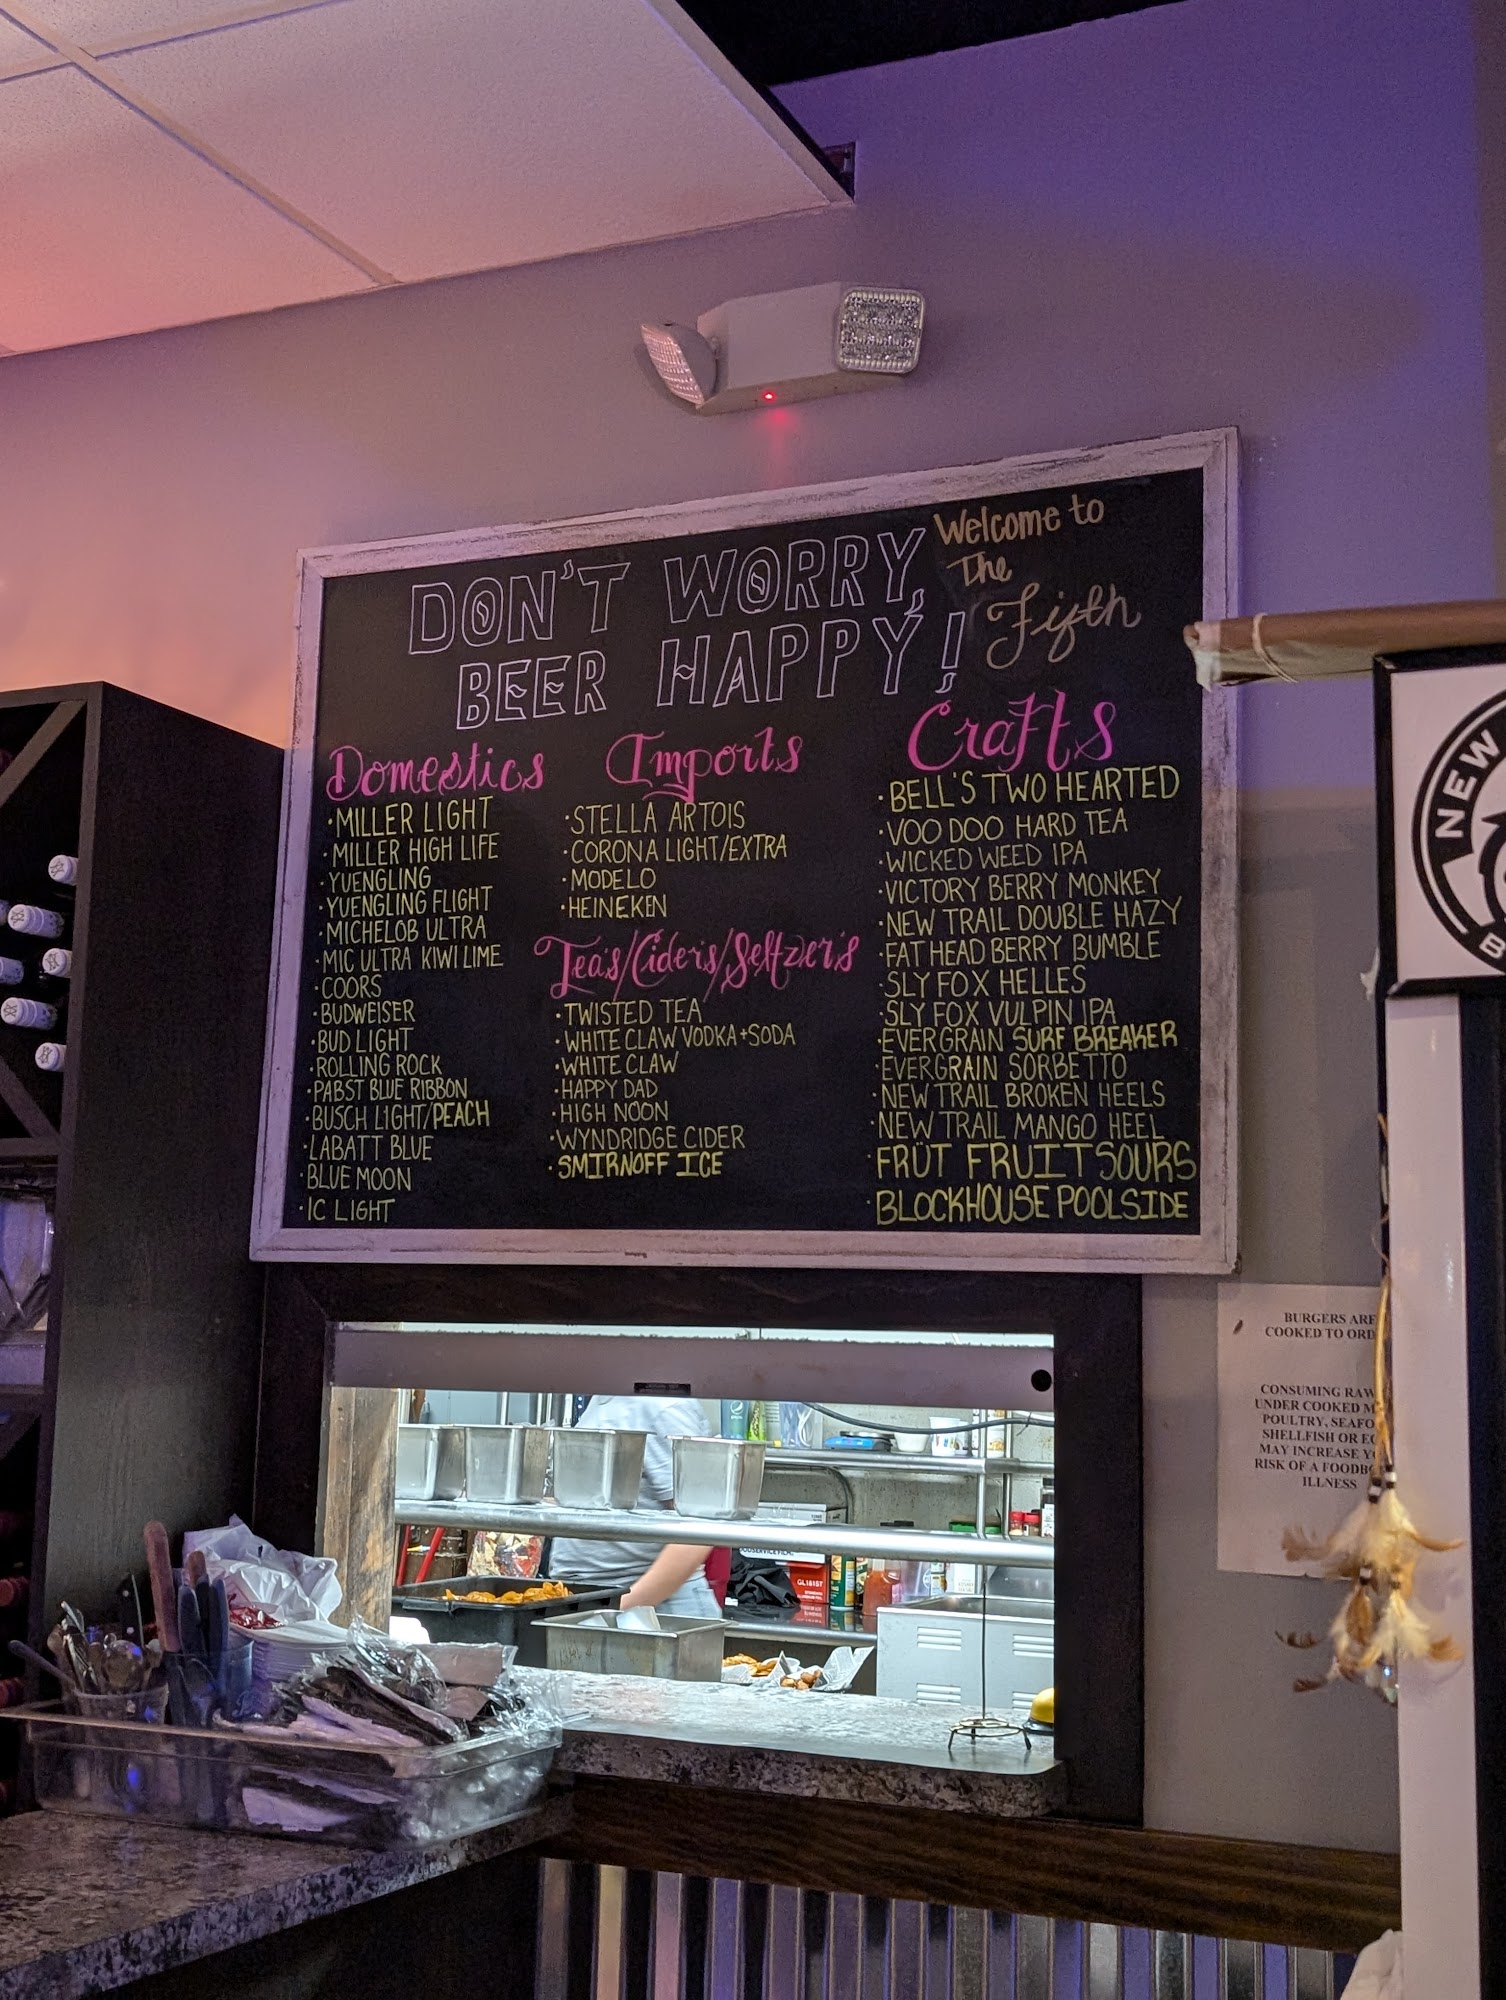 DON'T WORRY,
BEER HAPPY!
Welcome to
The
Fifth
Domestics
·MILLER LIGHT
·MILLER HIGH LIFE
·YUENGLING
·YUENGLING FLIGHT
·MICHELOB ULTRA
·MIC ULTRA KIWI LIME
·COORS
·BUDWEISER
·BUD LIGHT
·ROLLING ROCK
·PABST BLUE RIBBON
·BUSCH LIGHT/PEACH
·LABATT BLUE
·BLUE MOON
·IC LIGHT
Imports
·STELLA ARTOIS
·CORONA LIGHT/EXTRA
·MODELO
·HEINEKEN
Tea's/Cider's/Seltzer's
·TWISTED TEA
·WHITE CLAW VODKA+SODA
·WHITE CLAW
·HAPPY DAD
·HIGH NOON
·WYNDRIDGE CIDER
·SMIRNOFF ICE
Crafts
·BELL'S TWO HEARTED
·VOO DOO HARD TEA
·WICKED WEED IPA
·VICTORY BERRY MONKEY
·NEW TRAIL DOUBLE HAZY
·FAT HEAD BERRY BUMBLE
·SLY FOX HELLES
·SLY FOX VULPIN IPA
·EVERGRAIN SURF BREAKER
·EVERGRAIN SORBETTO
·NEW TRAIL BROKEN HEELS
·NEW TRAIL MANGO HEEL
·FRÜT FRUIT SOURS
·BLOCKHOUSE POOLSIDE
NEW
B
BURGERS ARE
COOKED TO ORD
CONSUMING RAW
UNDER COOKED M
POULTRY, SEAFO
SHELLFISH OR EG
MAY INCREASE YO
RISK OF A FOODBO
ILLNESS